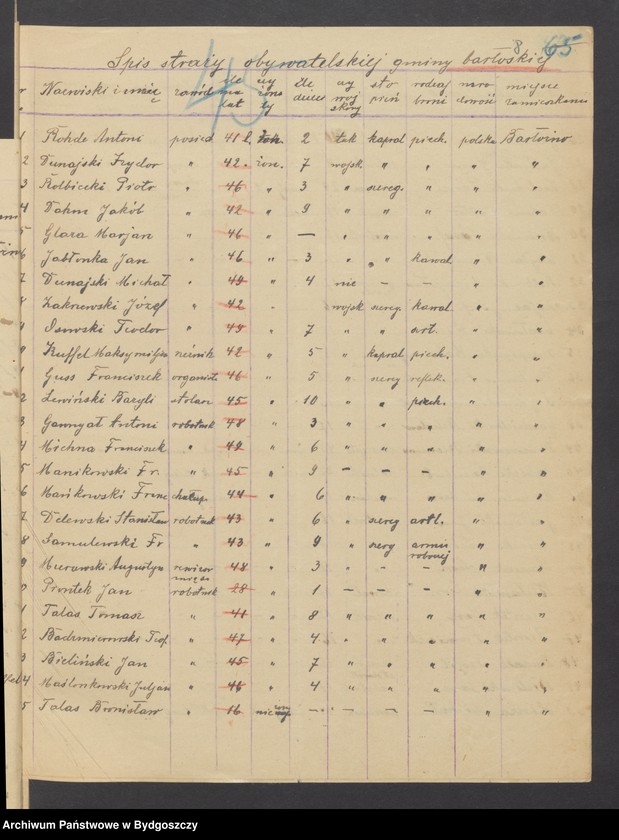 8 65
45
Spis straży obywatelskiej gminy bartoskiej
Nazwiski i imię zawód ile ma lat czy żona ty ile dzieci czy woj skowy sto pień rodzaj broni naro dowość miejsce zamieszkania
1 Rohde Antoni posied. 41 l. żon. 2 tak kapral piech. polska Bartoino
2 Dunajski Izydor " 42. żon. 7 wojsk " " " "
3 Kolbiecki Piotr " 46 " 3 " szereg. " " "
4 Dahm Jakób " 42 " 9 " " " " "
5 Glaza Marjan " 46 " — " " " " "
6 Jabłonka Jan " 46 " 3 " " kawal " "
7 Dunajski Michał " 44 " 4 nie — — " "
Zakrzewski Józef " 42 - wojsk szereg. kawal " "
Teodor " 44 " 7 " " art. " "
Kuffel Maksymiljan 42 " 5 " kapral piech. " "
1 Guss Franciszek organista 46 " 5 " szereg " "
2 Lewiński Bazyli stolarz 45 " 10 " " piech. " "
3 Antoni robotnik 48 " 3 " " " " "
4 Michna Franciszek " 42 " 6 " " " " "
5 Manikowski Fr. " 45 " 9 — — — " "
6 Mańkowski Franc chałup. 44 " 6 " " " " "
7 Delewski Stanisław robotnik 43 " 6 " szereg artl. " "
8 Samulewski Fr " 43 " 9 " szereg armii robonej " "
9 Murawski Augustyn 48 " 3 " — — " "
Prontek Jan robotnik 28 " 1 — — — " "
1 Talas Tomasz " 41 " 8 " " " " "
2 Teof. " 47 " 4 " " " " "
3 Bieliński Jan " 45 " 7 " " " " "
4 Maślonkowski Juljan " 46 " 4 " " " " "
5 Talas Bronisław " 16 — — — — " "
Archiwum Państwowe w Bydgoszczy